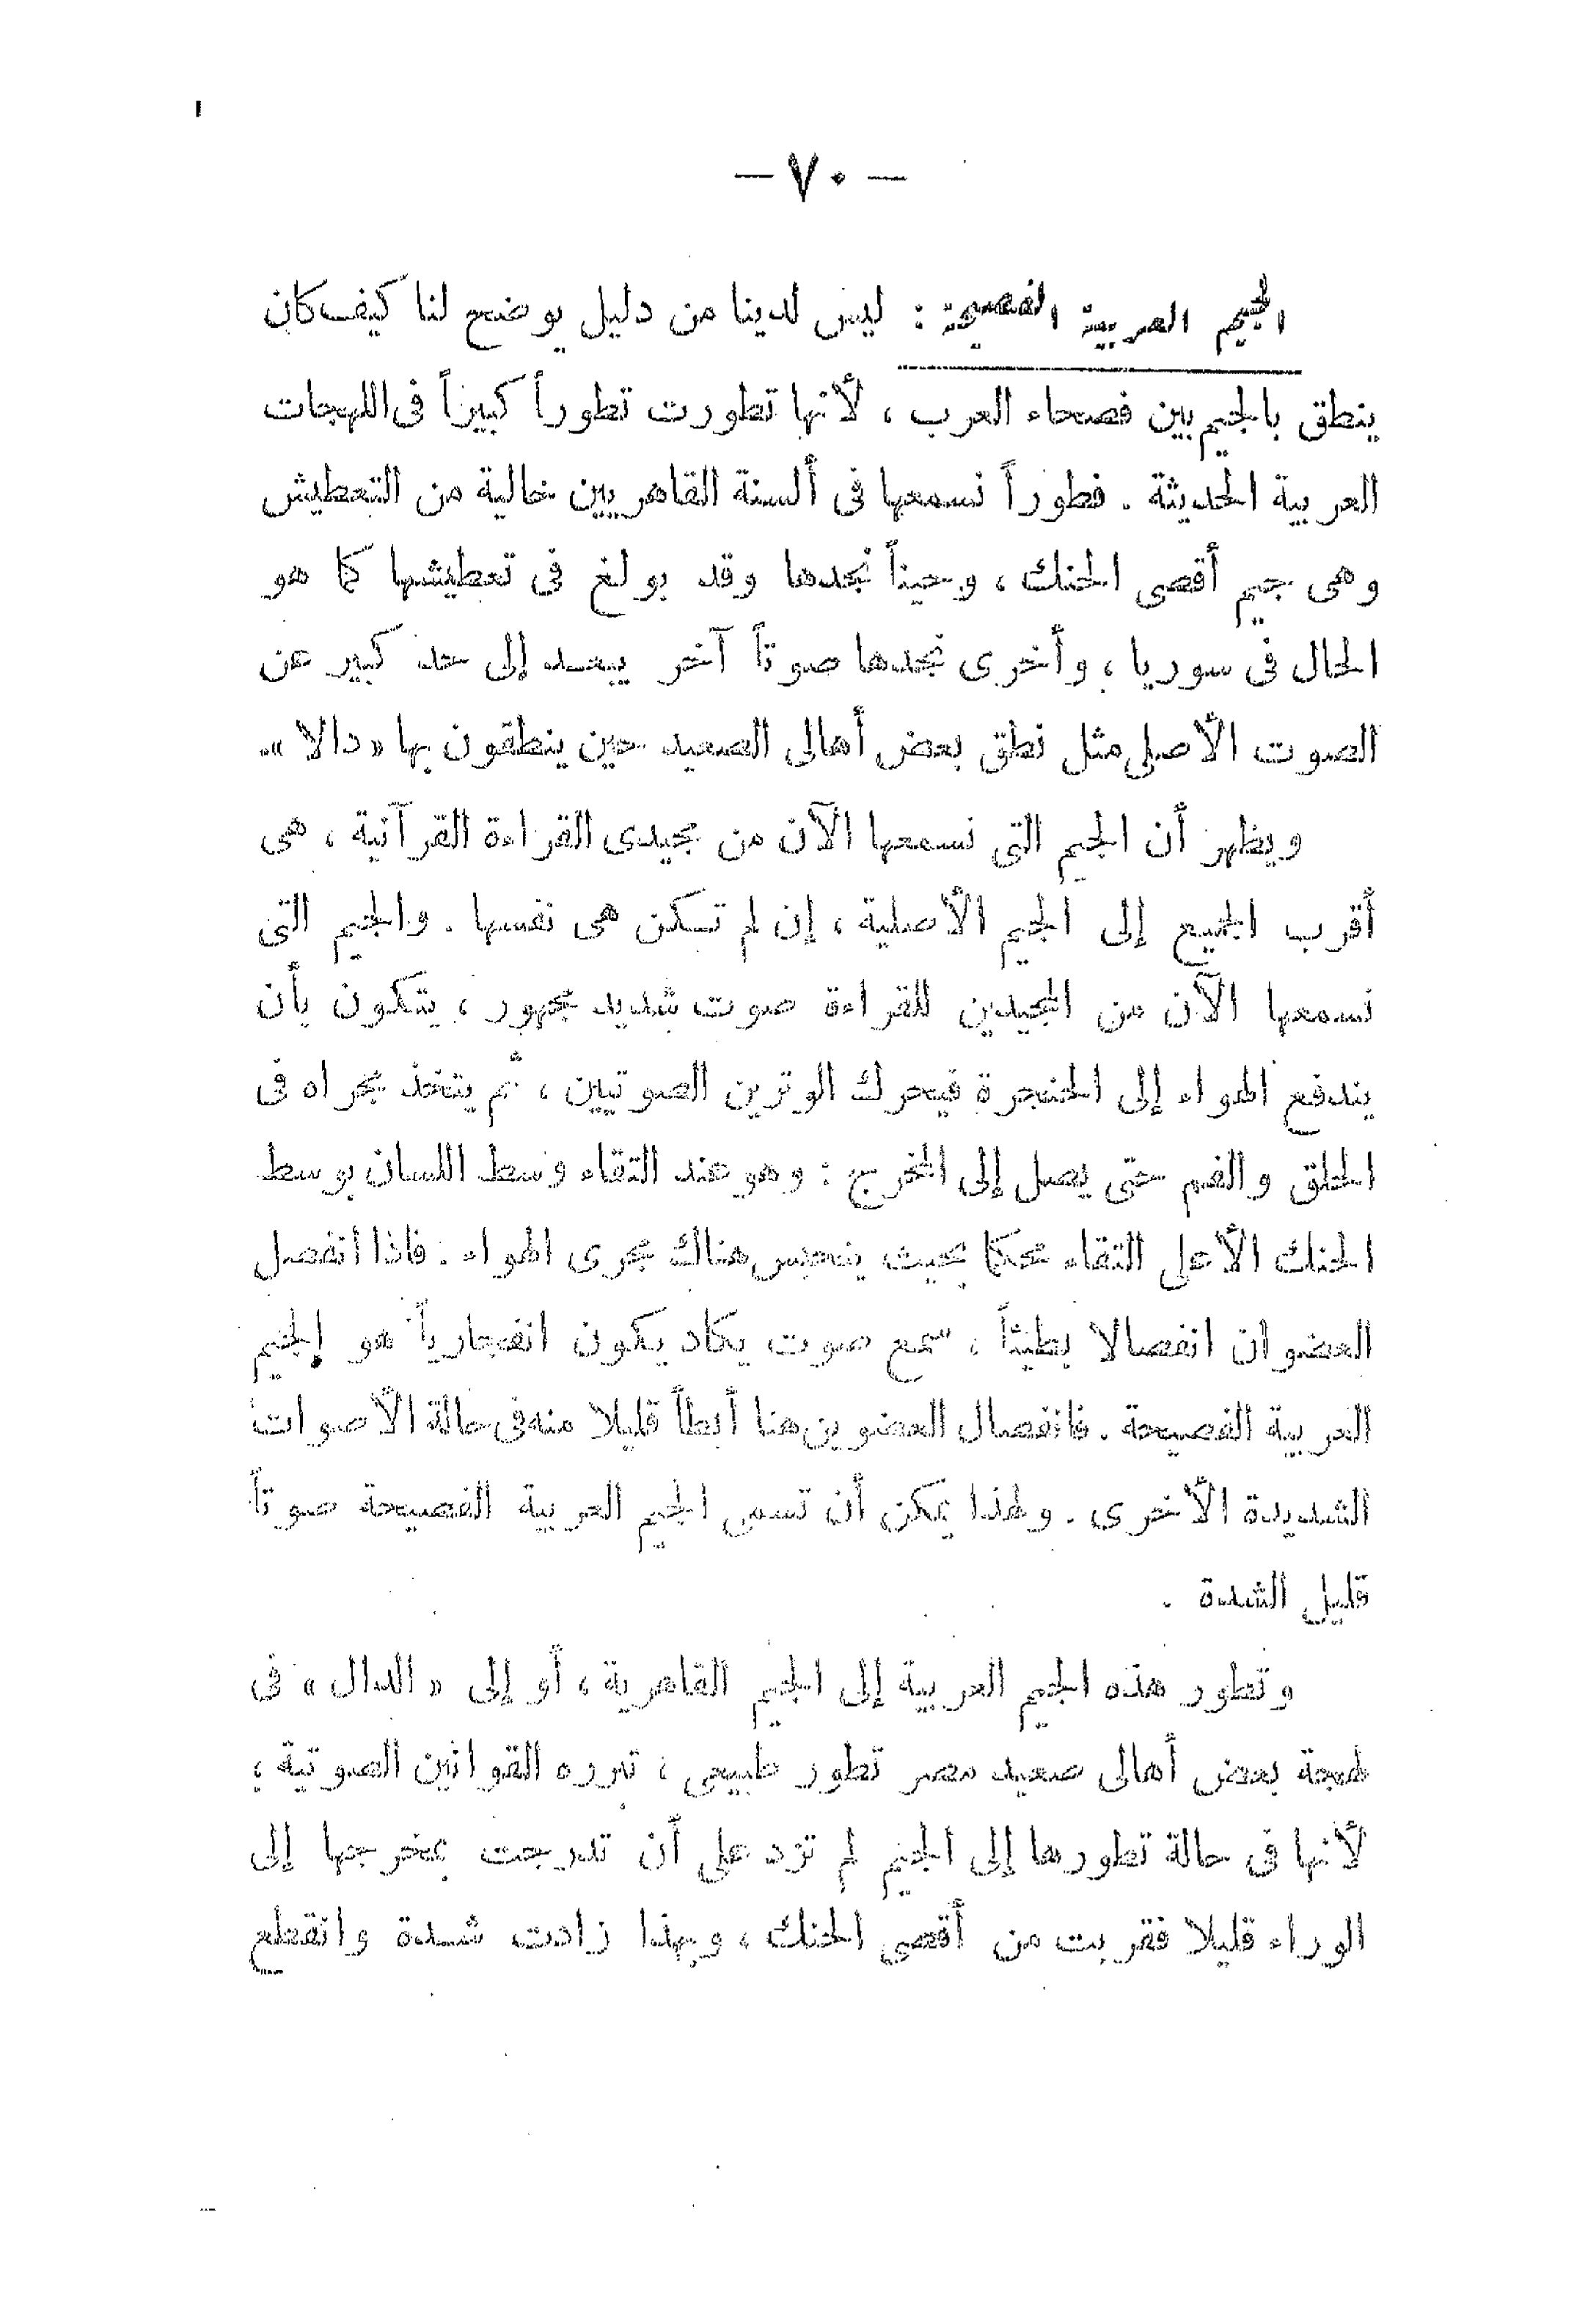 — ٧٠ —
الجيم العربية الفصيحة : ليس لدينا من دليل يوضح لنا كيف كان
ينطق بالجيم بين فصحاء العرب ، لأنها تطورت تطوراً كبيراً فى اللهجات
العربية الحديثة . فطوراً نسمعها فى ألسنة القاهريين خالية من التعطيش
وهى جيم أقصى الحنك ، وحيناً نجدها وقد بولغ فى تعطيشها كما هو
الحال فى سوريا ، وأخرى نجدها صوتاً آخر يبعد إلى حد كبير عن
الصوت الأصلى مثل نطق بعض أهالى الصعيد حين ينطقون بها «دالا».
ويظهر أن الجيم التى نسمعها الآن من مجيدى القراءة القرآنية ، هى
أقرب الجميع إلى الجيم الأصلية ، إن لم تكن هى نفسها . والجيم التى
نسمعها الآن من المجيدين للقراءة صوت شديد مجهور ، يتكون بأن
يندفع الهواء إلى الحنجرة فيحرك الوترين الصوتيين ، ثم يتخذ مجراه فى
الحلق والفم حتى يصل إلى المخرج : وهو عند التقاء وسط اللسان بوسط
الحنك الأعلى التقاء محكما بحيث ينحبس هناك مجرى الهواء . فاذا انفصل
العضوان انفصالا بطيئاً ، سمع صوت يكاد يكون انفجارياً هو الجيم
العربية الفصيحة . فانفصال العضوين هنا أبطأ قليلا منه فى حالة الأصوات
الشديدة الأخرى . ولهذا يمكن أن تسمى الجيم العربية الفصيحة صوتاً
قليل الشدة .
وتطور هذه الجيم العربية إلى الجيم القاهرية ، أو إلى « الدال » فى
لهجة بعض أهالى صعيد مصر تطور طبيعى ، تبرره القوانين الصوتية ؛
لأنها فى حالة تطورها إلى الجيم لم تزد على أن تدرجت بمخرجها إلى
الوراء قليلا فقربت من أقصى الحنك ، وبهذا زادت شدة وانقطع